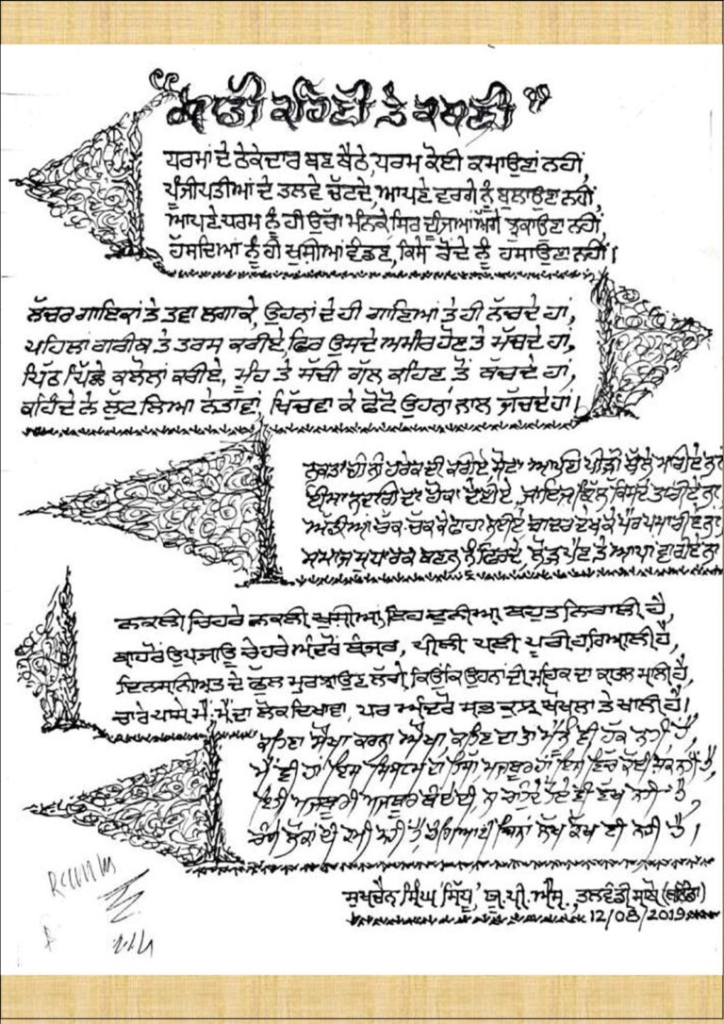 "ਸਾਡੀ ਰਹਿਣੀ ਤੇ ਕਥਣੀ"
ਧਰਮਾਂ ਦੇ ਠੇਕੇਦਾਰ ਬਣ ਬੈਠੇ, ਧਰਮ ਕੋਈ ਕਮਾਉਣਾਂ ਨਹੀਂ,
ਪੂੰਜੀਪਤੀਆਂ ਦੇ ਤਲਵੇ ਚੱਟਦੇ, ਆਪਣੇ ਵਰਗੇ ਨੂੰ ਬੁਲਾਉਣ ਨਹੀਂ,
ਆਪਣੇ ਧਰਮ ਨੂੰ ਹੀ ਉੱਚਾ ਮੰਨਕੇ ਸਿਰ ਦੂਜਿਆਂ ਅੱਗੇ ਝੁਕਾਉਣ ਨਹੀਂ,
ਹੱਸਦਿਆਂ ਨੂੰ ਹੀ ਖੁਸ਼ੀਆਂ ਵੰਡਣ, ਕਿਸੇ ਰੋਂਦੇ ਨੂੰ ਹਸਾਉਣਾ ਨਹੀਂ।
ਲੱਚਰ ਗਾਇਕਾਂ ਤੇ ਤਵਾ ਲਗਾਕੇ, ਉਹਨਾਂ ਦੇ ਹੀ ਗਾਣਿਆਂ ਤੇ ਹੀ ਨੱਚਦੇ ਹਾਂ,
ਪਹਿਲਾਂ ਗਰੀਬ ਤੇ ਤਰਸ ਕਰੀਏ, ਫਿਰ ਉਸਦੇ ਅਮੀਰ ਹੋਣ ਤੇ ਮੱਚਦੇ ਹਾਂ,
ਪਿੱਠ ਪਿੱਛੇ ਕਲੋਲਾਂ ਕਰੀਏ, ਮੂੰਹ ਤੇ ਸੱਚੀ ਗੱਲ ਕਹਿਣ ਤੋਂ ਬੱਚਦੇ ਹਾਂ,
ਕਹਿੰਦੇ ਨੇ ਲੁੱਟ ਲਿਆ ਨੇਤਾਵਾਂ, ਖਿੱਚਵਾ ਕੇ ਫੋਟੋ ਉਹਨਾਂ ਨਾਲ ਜੱਚਦੇ ਹਾਂ।
ਨੁਕਤਾਚੀਨੀ ਹਰੇਕ ਦੀ ਕਰੀਏ, ਸੋਟਾ ਆਪਣੀ ਪੀੜੀ ਥੱਲੇ ਮਾਰੀਏ ਨਾ
ਈਮਾਨਦਾਰੀ ਦਾ ਹੋਕਾ ਦੇਈਏ, ਜਾਇਜ਼ ਬਿੱਲ ਕਿਸੇ ਦੇ
ਅੱਡੀਆਂ ਚੱਕ ਚੱਕ ਕੇ ਫਾਹਾ ਲਈਏ ਚਾਦਰ ਦੇਖ ਕੇ ਪੈਰ ਪਸਾਰੀਏ ਨਾ
ਸਮਾਜ ਸੁਧਾਰਕ ਬਣਨ ਨੂੰ ਫਿਰਦੇ, ਲੋੜ ਪੈਣ ਤੇ ਆਪਾ ਵਾਰੀਏ ਨਾ
ਨਕਲੀ ਚਿਹਰੇ ਨਕਲੀ ਖੁਸ਼ੀਆਂ, ਇਹ ਦੁਨੀਆਂ ਬਹੁਤ ਨਿਰਾਲੀ ਹੈ,
ਬਾਹਰੋਂ ਉਪਜਾਊ ਚੇਹਰੇ ਅੰਦਰੋਂ ਬੰਜਰ, ਪੀਲੀ ਪਈ ਪੂਰੀ ਹਰਿਆਲੀ ਹੈ,
ਇਨਸਾਨੀਅਤ ਦੇ ਫੁੱਲ ਮੁਰਝਾਉਣ ਲੱਗੇ, ਕਿਉਂਕਿ ਉਹਨਾਂ ਦੀ ਮਹਿਕ ਦਾ ਕਾਤਲ ਮਾਲੀ ਹੈ,
ਚਾਰੇ ਪਾਸੇ ਮੈਂ, ਮੈਂ ਦਾ ਲੋਕ ਦਿਖਾਵਾ, ਪਰ ਅੰਦਰੋਂ ਸਭ ਕੁਝ ਖੋਖਲਾ ਤੇ ਖਾਲੀ ਹੈ।
ਕਹਿਣਾ ਸੌਖਾ ਕਰਨਾ ਔਖਾ, ਕਹਿਣ ਦਾ ਤਾਂ ਮੈਨੂੰ ਵੀ ਹੱਕ ਨਹੀਂ ਹੈ,
ਮੈਂ ਵੀ ਹਾਂ ਇਸ ਸਿਸਟਮ ਦਾ ਹਿੱਸਾ ਮਜ਼ਬੂਰ ਹਾਂ ਇਸ ਵਿੱਚ ਕੋਈ ਸ਼ੱਕ ਨਹੀਂ ਹੈ,
ਮਜ਼ਬੂਰੀ ਮਜ਼ਬੂਰ ਨਹੀਂ ਹੈ,
ਚੰਗੇ ਲੋਕਾਂ ਦੀ ਕਮੀ ਨਹੀਂ ਹੈ, ਨਹੀਂ ਹੈ।
ਸੁਖਚੈਨ ਸਿੰਘ 'ਸਿੱਧੂ', ਯੂ.ਪੀ.ਐੱਸ., ਤਲਵੰਡੀ ਸਾਬੋ (ਬਠਿੰਡਾ)
12/08/2019